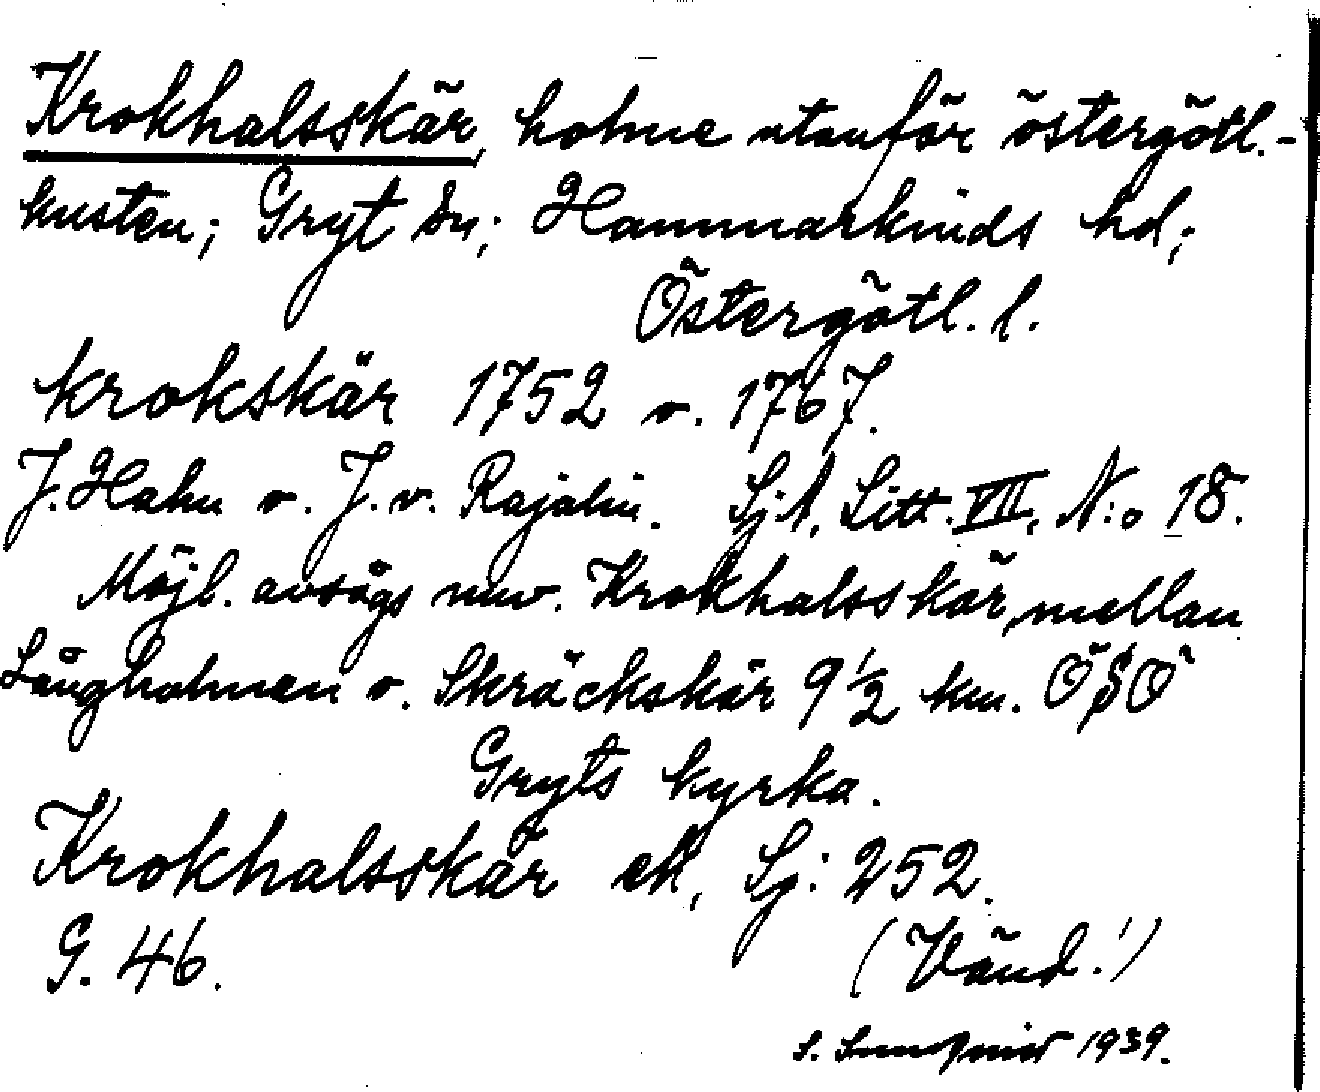 Krokhalsskär, holme utanför östergötl.-
kusten; Gryt sn; Hammarkinds hd;
Östergötl. l.
krokskär 1752 o. 1767.
J. Hahn o. J. v. Rajalin. Sj:A, Litt. VII, N:o 18.
Möjl. avsågs nuv. Krokhalsskär, mellan
Långholmen o. Skräckskär 9 1/2 km. ÖSÖ
Gryts kyrka.
Krokhalsskär ek, Sj: 252.
G. 46.
(Vänd!)
S. 1939.